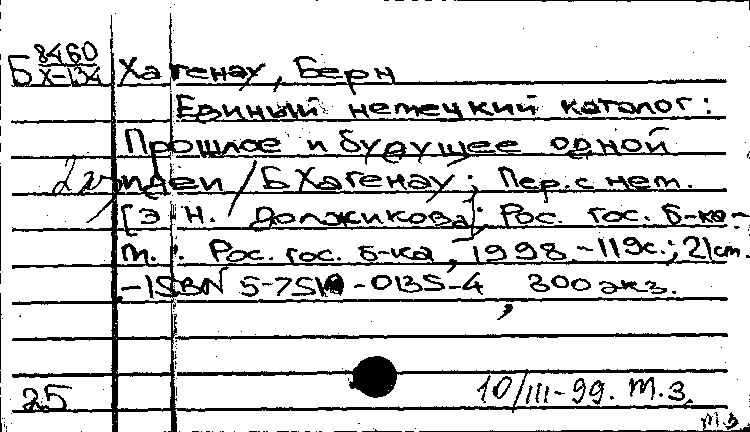 Б 8460
Х-134 Хагенау, Берн
Единый немецкий каталог:
Прошлое и будущее одной
идеи / Б Хагенау; Пер. с нем.
[Э. Н. Должикова]; Рос. гос. б-ка-
М.: Рос. гос. б-ка, 1998.-119с.; 21 cm.
-ISBN 5-7510-0135-4, 300 экз.
25 10/III-99. Т.З.
Т.З